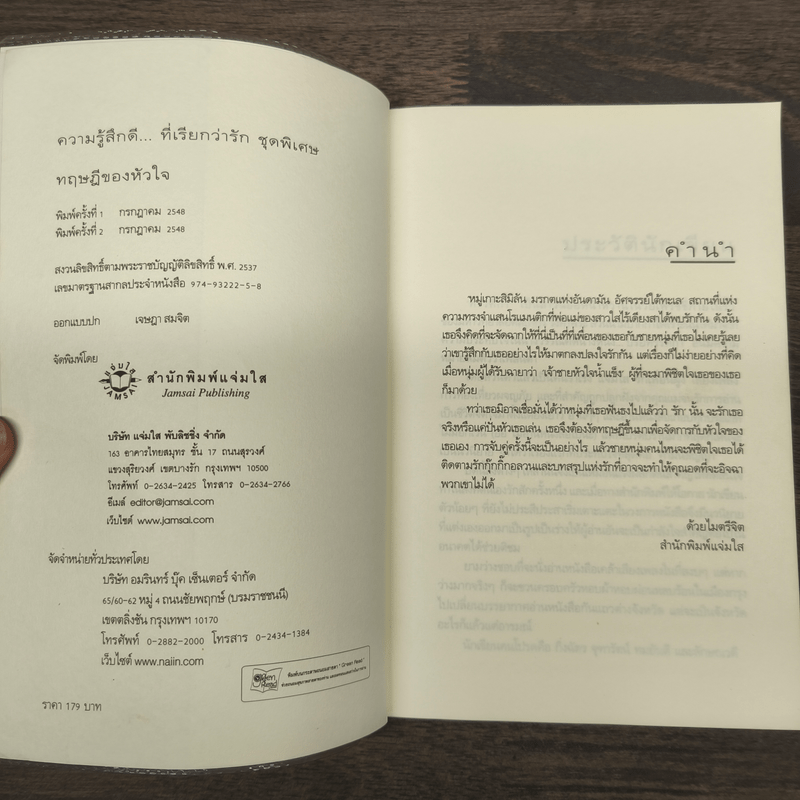 ความรู้สึกดี... ที่เรียกว่ารัก ชุดพิเศษ
ทฤษฎีของหัวใจ
พิมพ์ครั้งที่ 1 กรกฎาคม 2548
พิมพ์ครั้งที่ 2 กรกฎาคม 2548
สงวนลิขสิทธิ์ตามพระราชบัญญัติลิขสิทธิ์ พ.ศ. 2537
เลขมาตรฐานสากลประจำหนังสือ 974-93222-5-8
ออกแบบปก เจษฎา สมจิต
จัดพิมพ์โดย
แจ่มใส
JAMSAI
สำนักพิมพ์แจ่มใส
Jamsai Publishing
บริษัท แจ่มใส พับลิชชิ่ง จำกัด
163 อาคารไทยสมุทร ชั้น 17 ถนนสุรวงศ์
แขวงสุริยวงศ์ เขตบางรัก กรุงเทพฯ 10500
โทรศัพท์ 0-2634-2425 โทรสาร 0-2634-2766
อีเมล์ editor@jamsai.com
เว็บไซต์ www.jamsai.com
จัดจำหน่ายทั่วประเทศโดย
บริษัท อมรินทร์ บุ๊ค เซ็นเตอร์ จำกัด
65/60-62 หมู่ 4 ถนนชัยพฤกษ์ (บรมราชชนนี)
เขตตลิ่งชัน กรุงเทพฯ 10170
โทรศัพท์ 0-2882-2000 โทรสาร 0-2434-1384
เว็บไซต์ www.naiin.com
Green Read
พิมพ์บนกระดาษถนอมสายตา "Green Read"
ราคา 179 บาท
คำนำ
หมู่เกาะสิมิลัน มรกตแห่งอันดามัน อัศจรรย์ใต้ทะเล สถานที่แห่ง
ความทรงจำแสนโรแมนติกที่พ่อแม่ของสาวใสไร้เดียงสาได้พบรักกัน ดังนั้น
เธอจึงคิดที่จะจัดฉากให้ที่นี่เป็นที่ที่เพื่อนของเธอกับชายหนุ่มที่เธอไม่เคยรู้เลย
ว่าเขารู้สึกกับเธออย่างไรให้มาตกลงปลงใจรักกัน แต่เรื่องก็ไม่ง่ายอย่างที่คิด
เมื่อหนุ่มผู้ได้รับฉายาว่า 'เจ้าชายหัวใจน้ำแข็ง' ผู้ที่จะมาพิชิตใจเธอของเธอ
ก็มาด้วย
ทว่าเธอมิอาจเชื่อมั่นได้ว่าหนุ่มที่เธอฟันธงไปแล้วว่า 'รัก' นั้น จะรักเธอ
จริงหรือแค่ปั่นหัวเธอเล่น เธอจึงต้องงัดทฤษฎีขึ้นมาเพื่อจัดการกับหัวใจของ
เธอเอง การจับคู่ครั้งนี้จะเป็นอย่างไร แล้วชายหนุ่มคนไหนจะพิชิตใจเธอได้
ติดตามรักกุ๊กกิ๊กอลวนและบทสรุปแห่งรักที่อาจจะทำให้คุณอดที่จะอิจฉา
พวกเขาไม่ได้
ด้วยไมตรีจิต
สำนักพิมพ์แจ่มใส